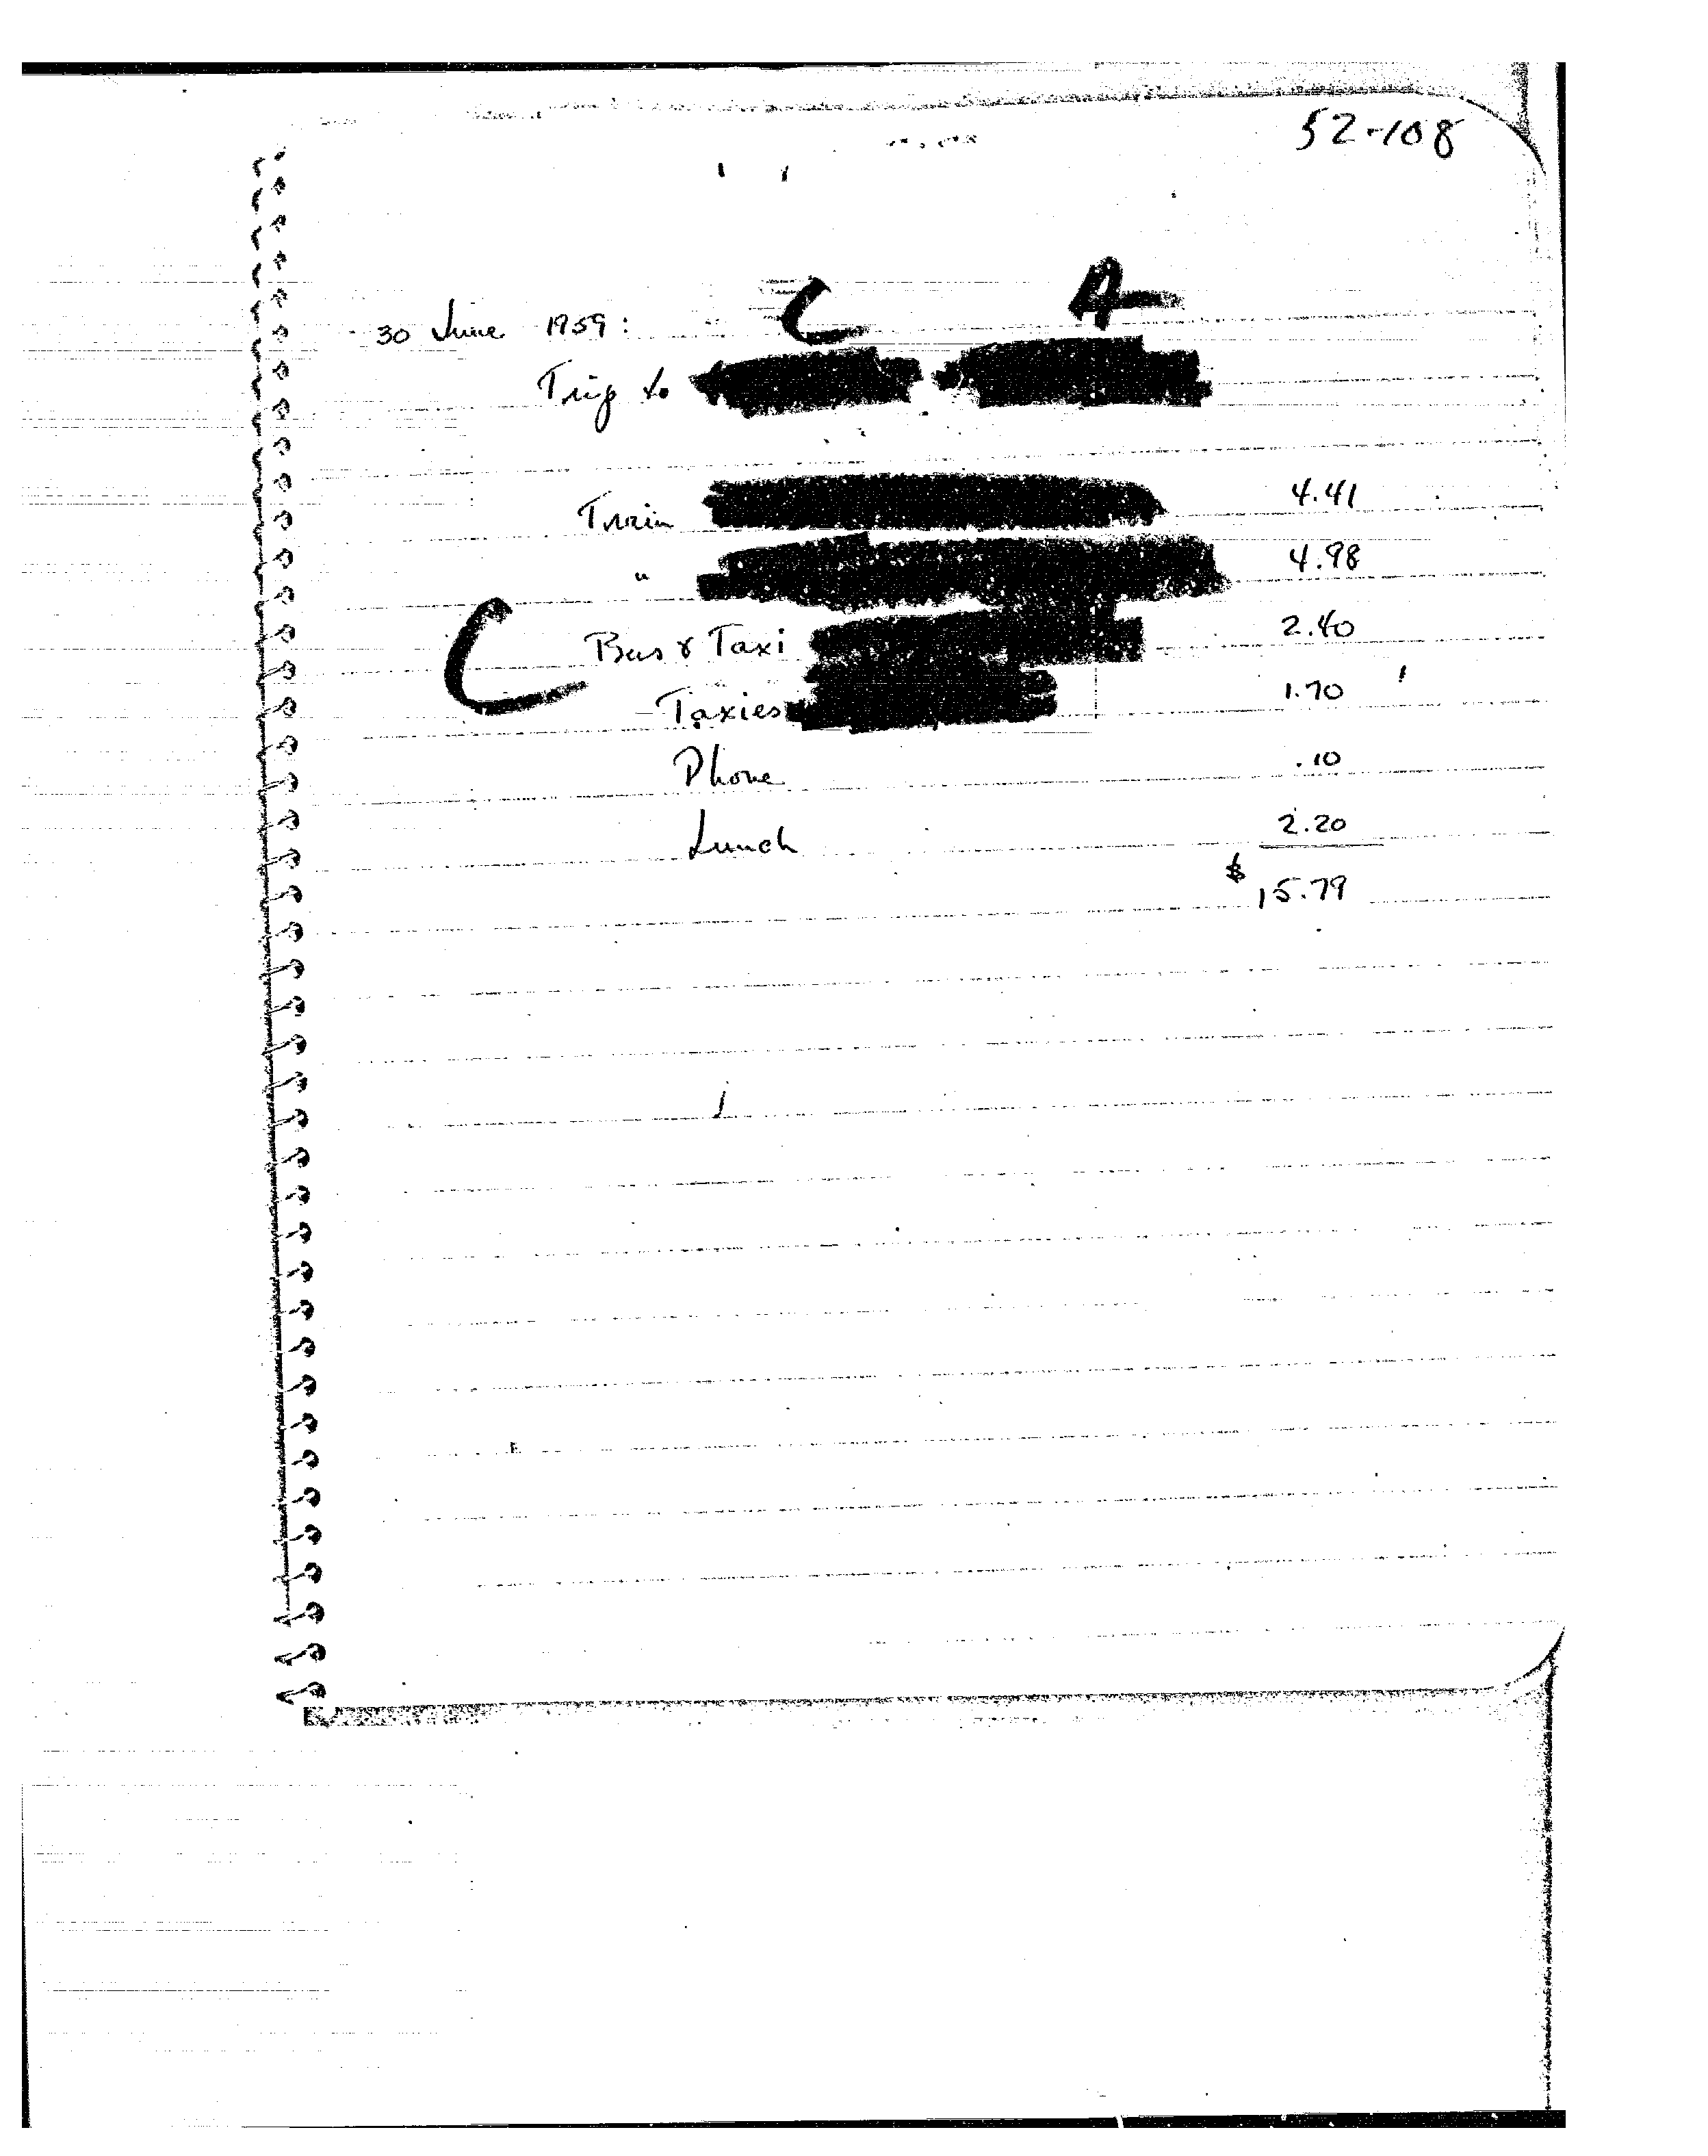 52-108
C A
30 June 1959:
Trip to
Train 4.41
" 4.98
C Bus & Taxi 2.40
Taxies 1.70
Phone .10
Lunch 2.20
$ 15.79